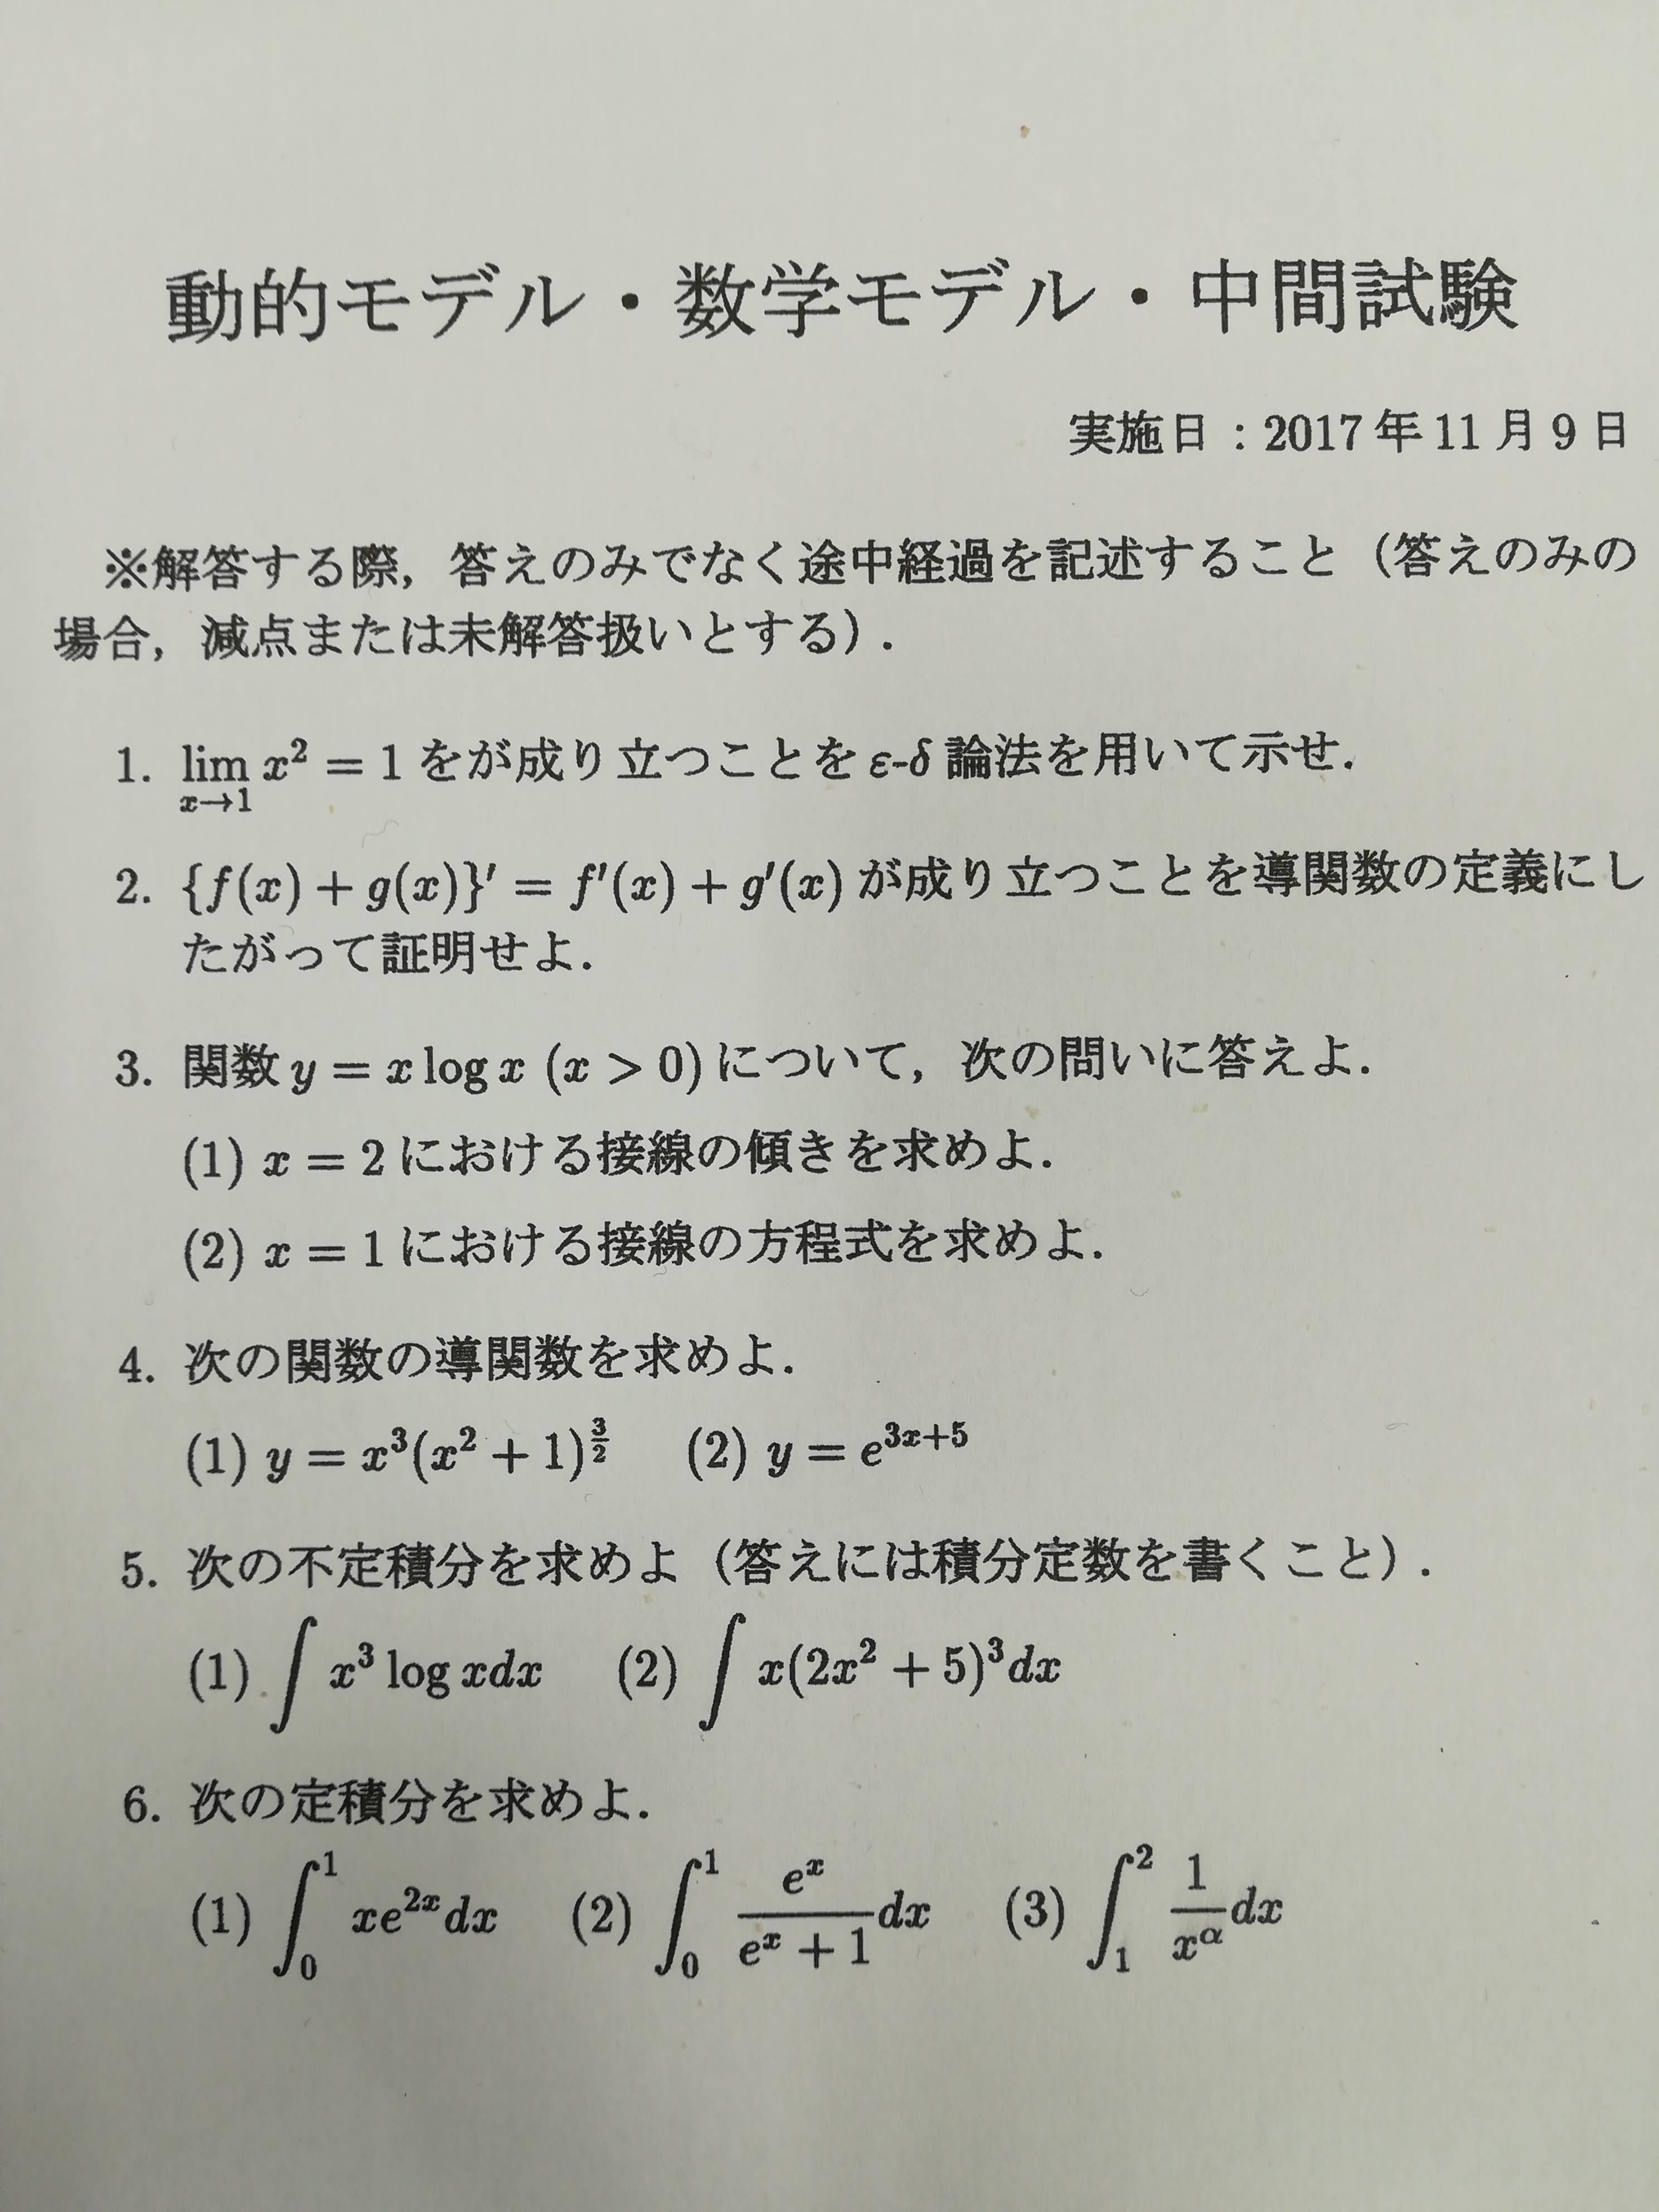 動的モデル・数学モデル・中間試験
実施日：2017年11月9日
※解答する際，答えのみでなく途中経過を記述すること（答えのみの
場合，減点または未解答扱いとする）．
1. lim_{x→1} x² = 1 をが成り立つことを ε-δ 論法を用いて示せ．
2. {f(x) + g(x)}′ = f′(x) + g′(x) が成り立つことを導関数の定義にし
たがって証明せよ．
3. 関数 y = x log x (x > 0) について，次の問いに答えよ．
(1) x = 2 における接線の傾きを求めよ．
(2) x = 1 における接線の方程式を求めよ．
4. 次の関数の導関数を求めよ．
(1) y = x³(x² + 1)^{3/2} (2) y = e^{3x+5}
5. 次の不定積分を求めよ（答えには積分定数を書くこと）．
(1) ∫ x³ log xdx (2) ∫ x(2x² + 5)³dx
6. 次の定積分を求めよ．
(1) ∫_0^1 xe^{2x}dx (2) ∫_0^1 e^x/(e^x + 1) dx (3) ∫_1^2 1/x^α dx